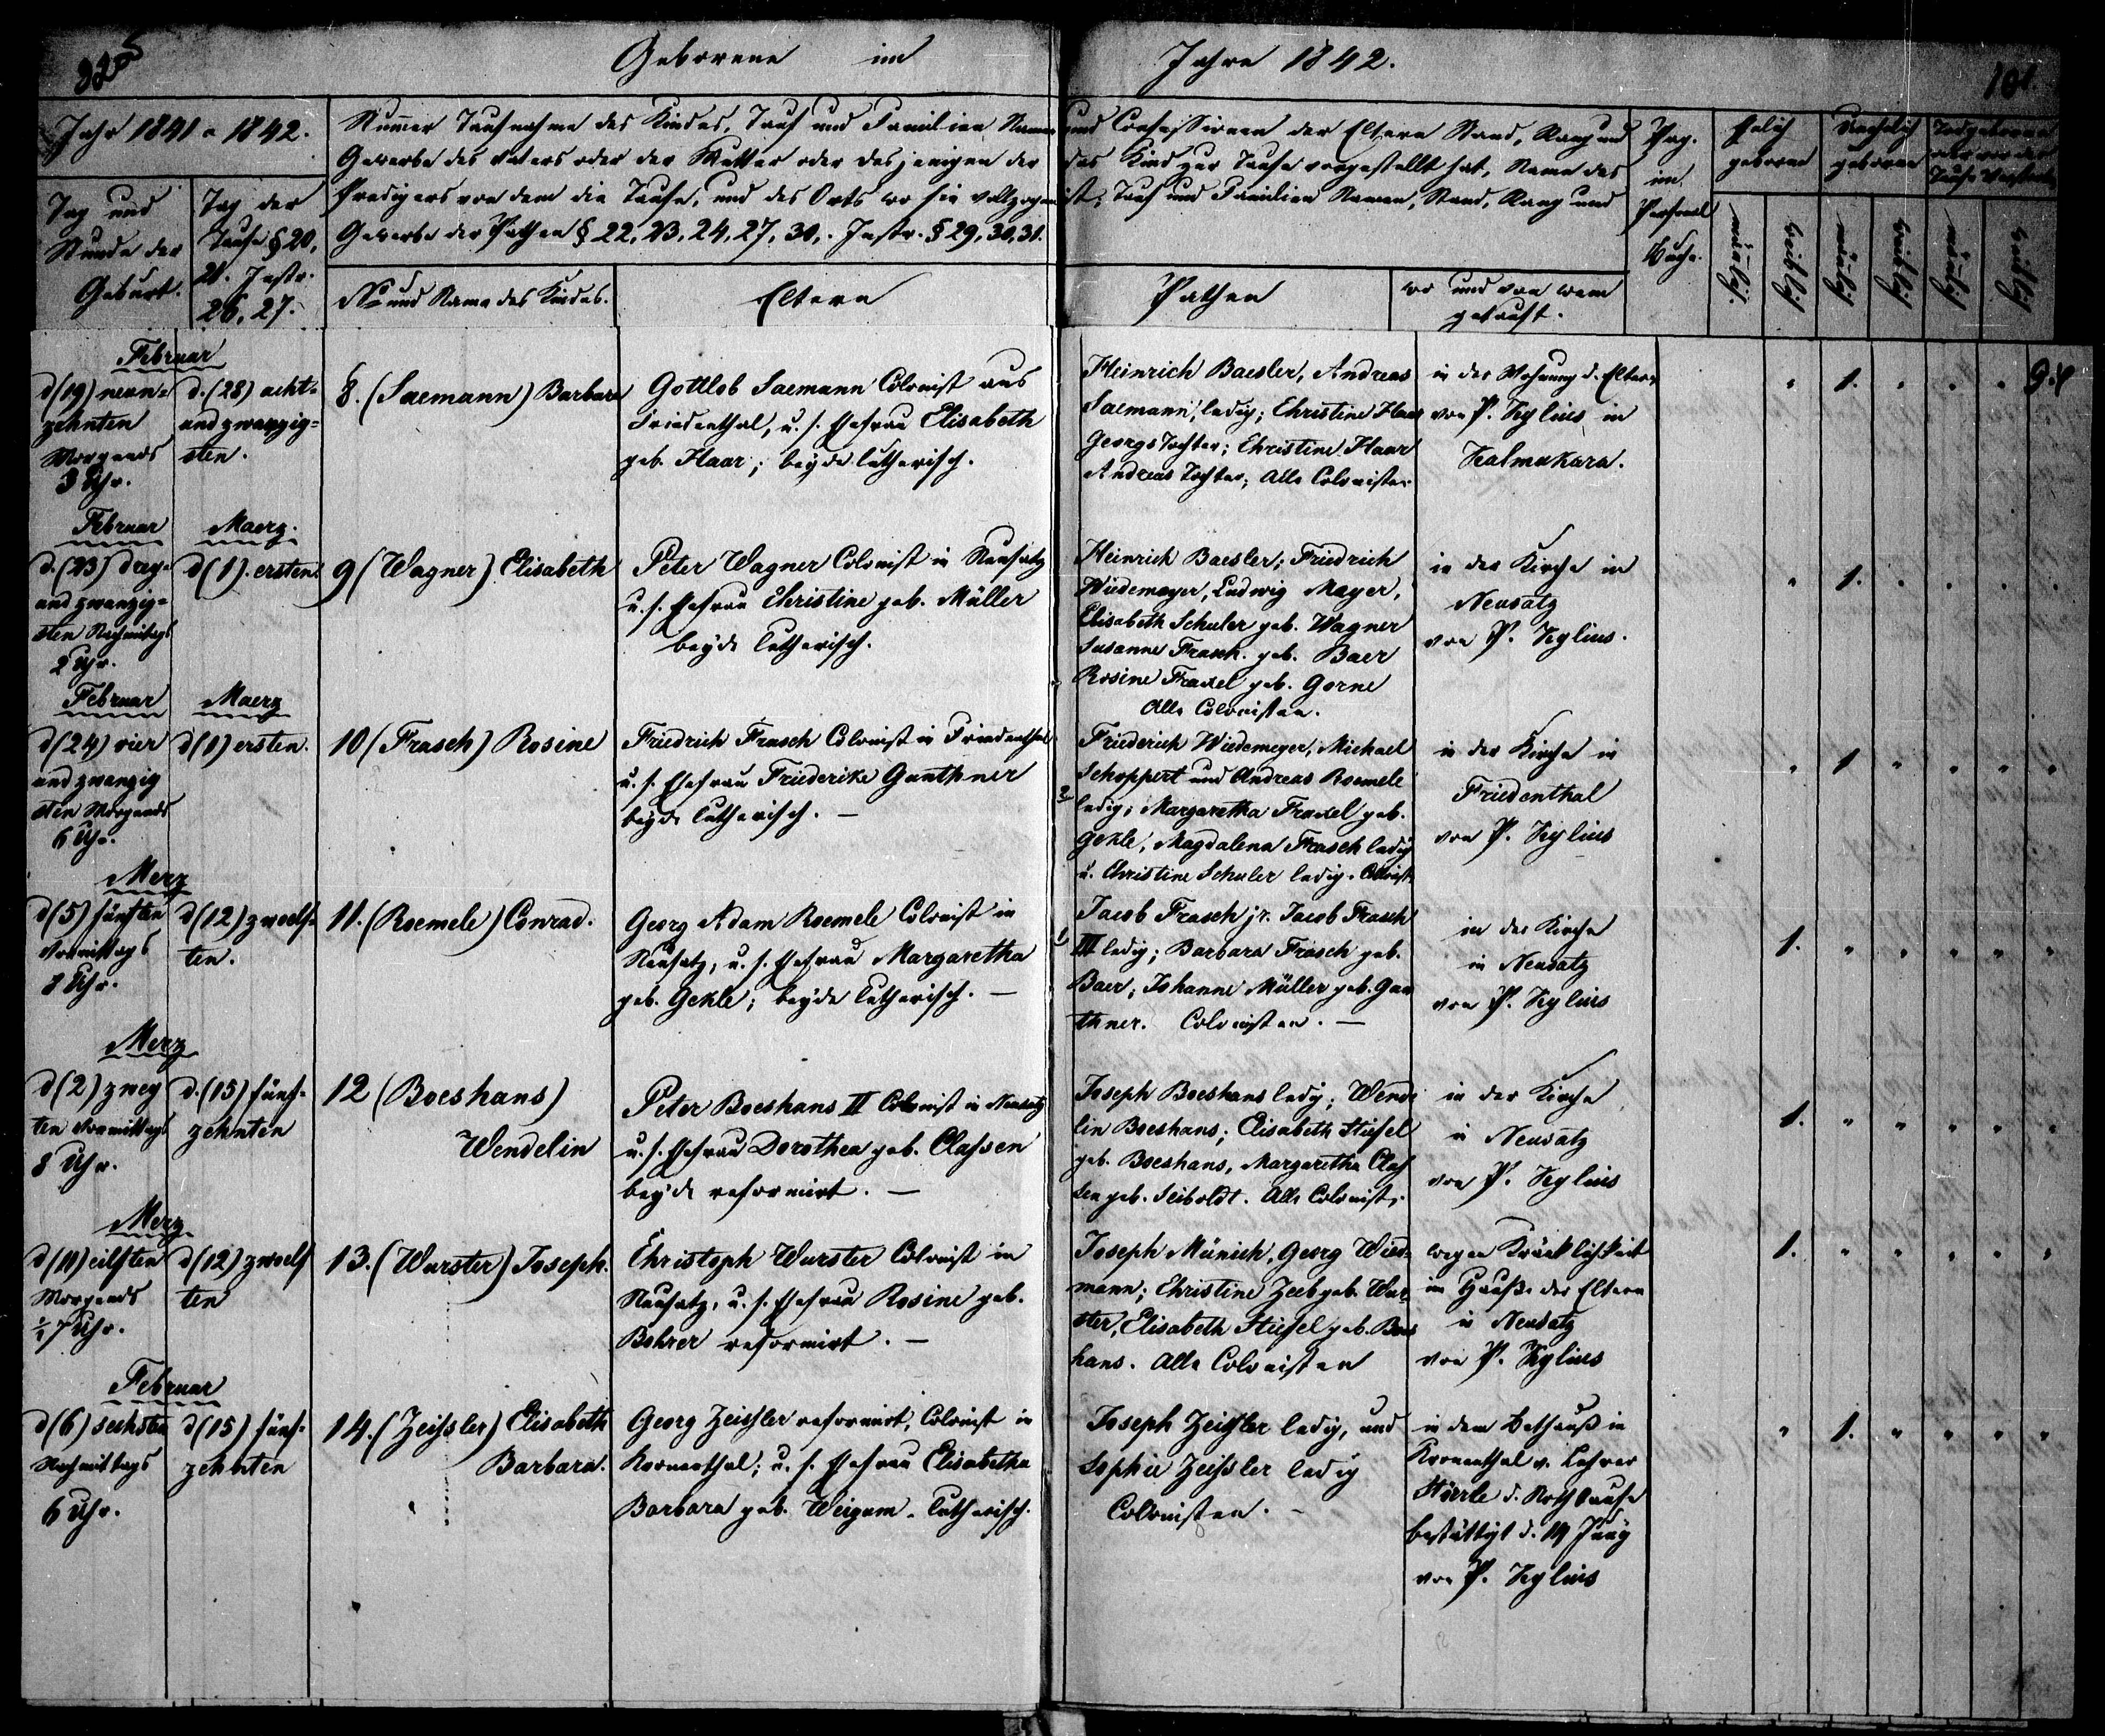 Geborene im Jahre 1842.
101.
Jahr 1841 a 1842.
Tag und
Stunde der
Geburt.
Tag der
Taufe § 20,
21. Instr.
26, 27.
Numer Taufnahme des Kindes, Tauf und Familien Namen und Confessionen der Eltern Stand, Rang und
Gewerbe des Vaters oder der Mutter oder desjenigen der das Kind zur Taufe vorgestellt hat, Name des
Predigers von dem die Taufe, und des Orts wo sie vollzogen ist, Tauf und Familien Namen, Stand, Rang und
Gewerbe der Pathen § 22, 23, 24, 27, 30,. Instr. § 29, 30, 31.
No und Name des Kindes.
Eltern
Pathen
wo und von wem
getauft.
Pag.
im
Personal
Buche.
Ehelich
geboren
Unehelich
geboren
Todgeborene
oder vor der
Taufe
mänlich
weiblich
mänlich
weiblich
mänlich
weiblich
Februar
d (19) neun=
zehnten
Morgends
3 Uhr.
d. (28) acht=
und zwanzig=
sten.
8. (Saemann) Barbara
Gottlob Saemann Colonist aus
Friedenthal, u. s. Ehefrau Elisabeth
geb. Haar; beyde lutherisch.
Heinrich Baesler, Andreas
Saemann, ledig; Christine Haar
Georgs Tochter; Christine Haar
Andreas Tochter; Alle Colonisten
in der Wohnung d. Eltern
von P. Kylius in
Kalmukara.
1.
Februar
d. (23) drey=
und zwanzig=
sten Nachmittags
2 Uhr.
Maerz.
d (1). ersten.
9 (Wagner) Elisabeth
Peter Wagner Colonist in Neusatz
u. s. Ehefrau Christine geb. Müller
beyde lutherisch.
Heinrich Baesler; Friedrich
Wiedemayer, Ludwig Mayer,
Elisabeth Schuler geb. Wagner
Susanne Frasch. geb. Baer
Rosine Fraxel geb. Gorne
Alle Colonisten.
in der Kirche in
Neusatz
von P. Kylius.
1.
Februar
d (24) vier
und zwanzig
sten Morgends
6 Uhr.
Maerz
d (1) ersten.
10 (Frasch) Rosine
Friedrich Frasch Colonist in Friedenthal
u. s. Ehefrau Friederike Ganthner
beyde lutherisch. —
Friederich Wiedemeyer, Michael
Schoppert und Andreas Roemele
ledig; Margaretha Fraxel geb.
Gekle, Magdalena Frasch ledig
u. Christine Schuler ledig. Colonist.
in der Kirche in
Friedenthal
von P. Kylius
1
Merz
d (5) fünften
Vormittags
8 Uhr.
d (12) zwoelf=
ten.
11. (Roemele) Conrad.
Georg Adam Roemele Colonist in
Neusatz, u. s. Ehefrau Margaretha
geb. Gekle; beyde lutherisch. —
Jacob Frasch jr. Jacob Frasch
III ledig; Barbara Frasch geb.
Baer; Johanne Müller geb. Gan
thner. Colonisten. —
in der Kirche
in Neusatz
von P. Kylius
1.
Merz
d (2) zwey
ten Vormittags
8 Uhr.
d. (15) fünf=
zehnten
12 (Boeshans)
Wendelin
Peter Boeshans II Colonist in Neusatz
u. s. Ehefrau Dorothea geb. Classen
beyde reformirt. —
Joseph Boeshans ledig; Wende
lin Boeshans; Elisabeth Stiefel
geb. Boeshans, Margaretha Clas
sen geb. Seiboldt. Alle Colonist.
in der Kirche
in Neusatz
von P. Kylius
1.
Merz
d (11) eilften
Morgends
½ 7 Uhr.
d (12) zwoelf
ten
13. (Wurster) Joseph.
Christoph Wurster Colonist in
Neusatz, u. s. Ehefrau Rosine geb.
Bohrer reformirt. —
Joseph Münich, Georg Wied=
mann; Christine Zeeb geb. Wur=
ster, Elisabeth Stiefel geb. Boes
hans. Alle Colonisten
wegen Kränklichkeit
im Hauße der Eltern
in Neusatz
von P. Kylius
1.
Februar
d (6) sechsten
Nachmittags
6 Uhr.
d (15) fünf=
zehnten
14. (Zeissler) Elisabeth
Barbara.
Georg Zeissler reformirt, Colonist in
Kronenthal; u. s. Ehefrau Elisabetha
Barbara geb. Weigum. lutherisch.
Joseph Zeissler ledig, und
Sophie Zeissler ledig
Colonisten. —
in dem Bethauß in
Kronenthal v. Lehrer
Störrle d. Nothtaufe
bestättigt d. 14 Juny
von P. Kylius
1.